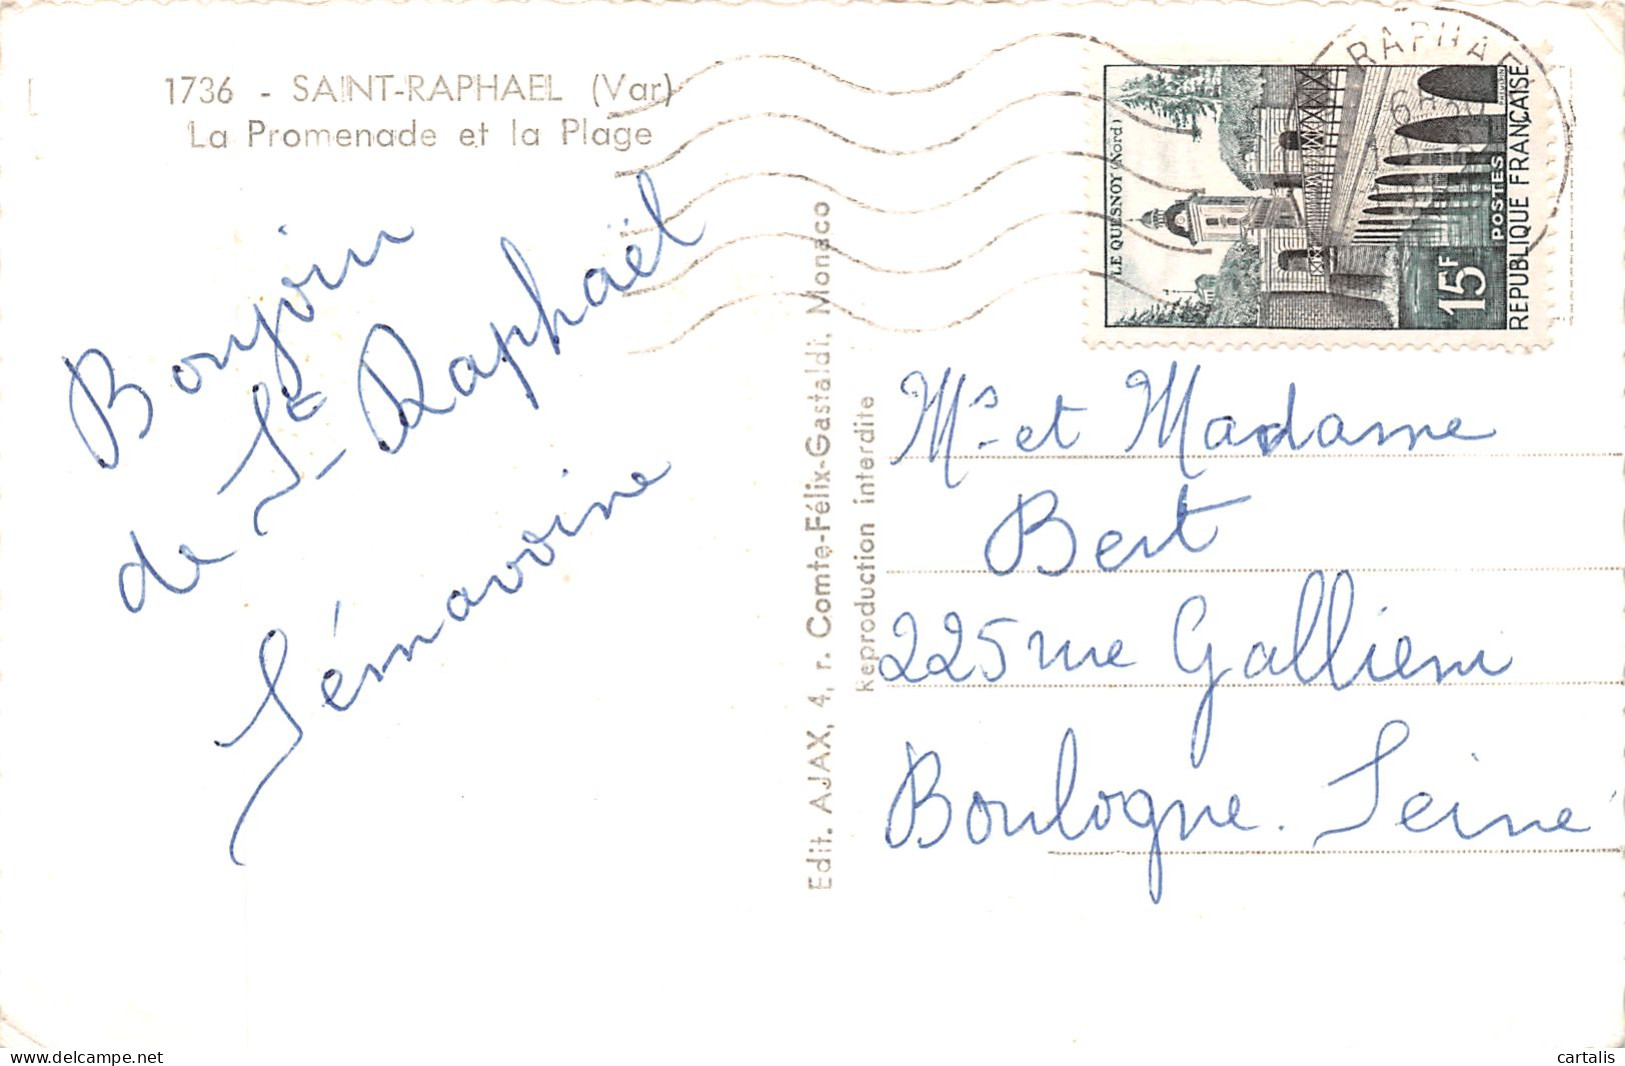 1736 - SAINT-RAPHAEL (Var)
La Promenade et la Plage
Bonjour
de St-Raphaël
Sémavoine
Edit. AJAX, 4, r. Comte-Félix-Gastaldi, Monaco
Reproduction interdite
RAPHAE
LE QUESNOY (Nord)
15F
POSTES
REPUBLIQUE FRANÇAISE
Mr et Madame
Bert
225 rue Gallieni
Boulogne. Seine
www.delcampe.net
cartalis